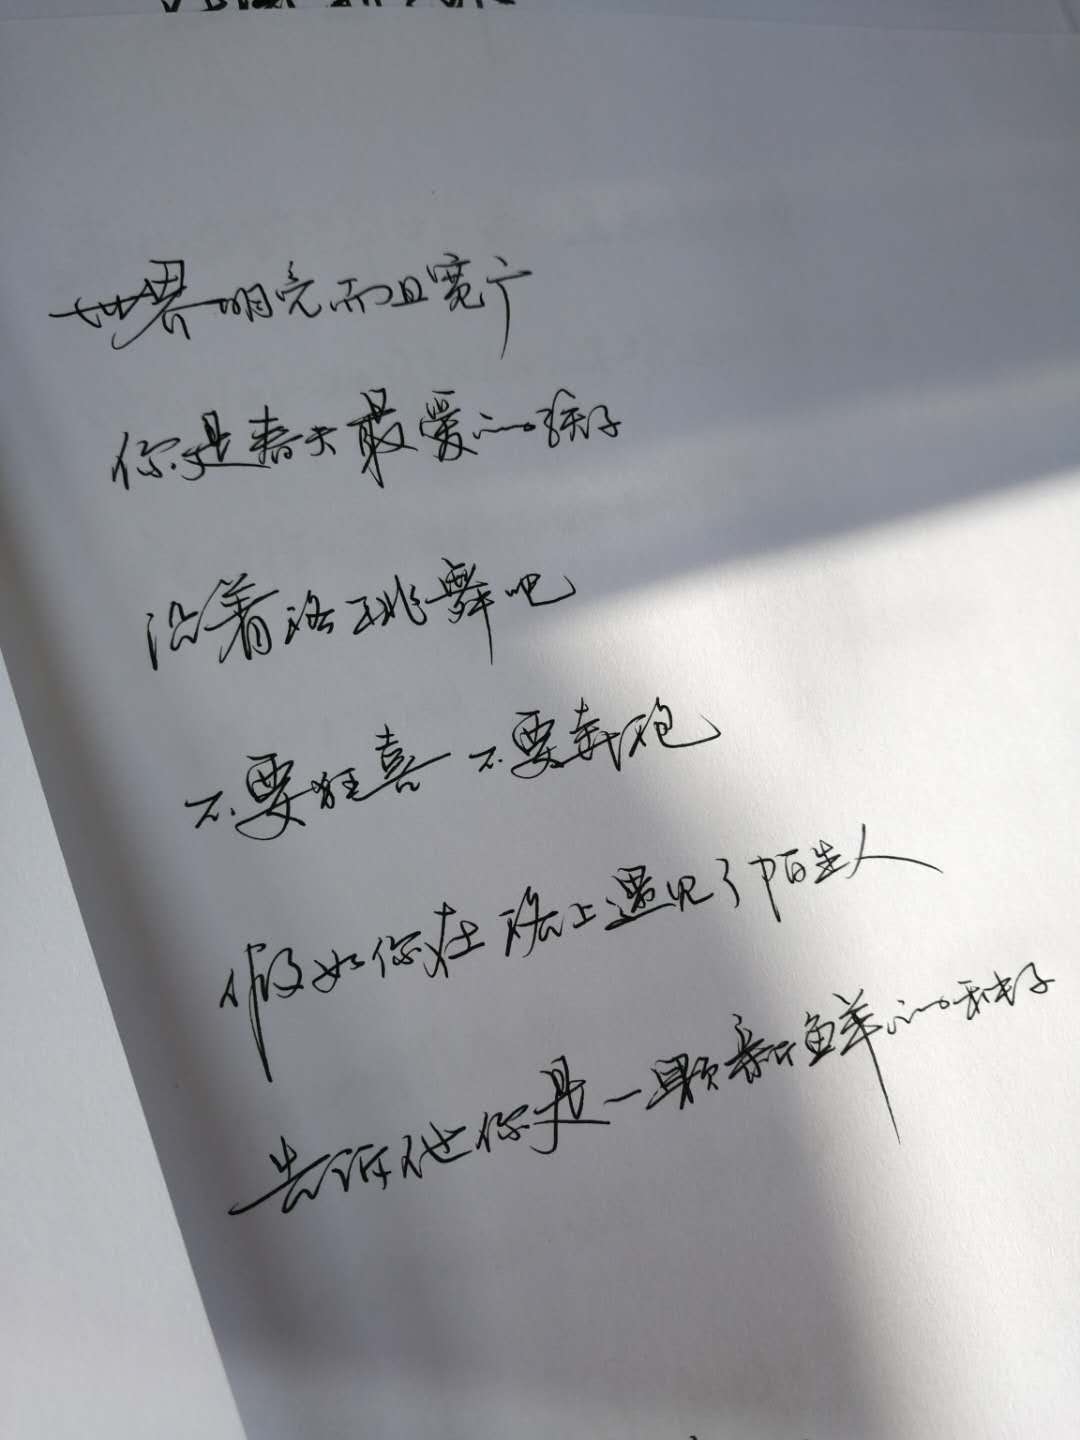 世界明亮而且宽广
你是春天最爱的孩子
沿着路跳舞吧
不要狂喜 不要奔跑
假如你在路上遇见了陌生人
告诉他你是一颗新鲜的种子